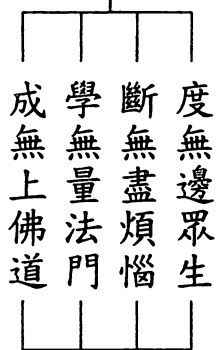 度無邊眾生
斷無盡煩惱
學無量法門
成無上佛道